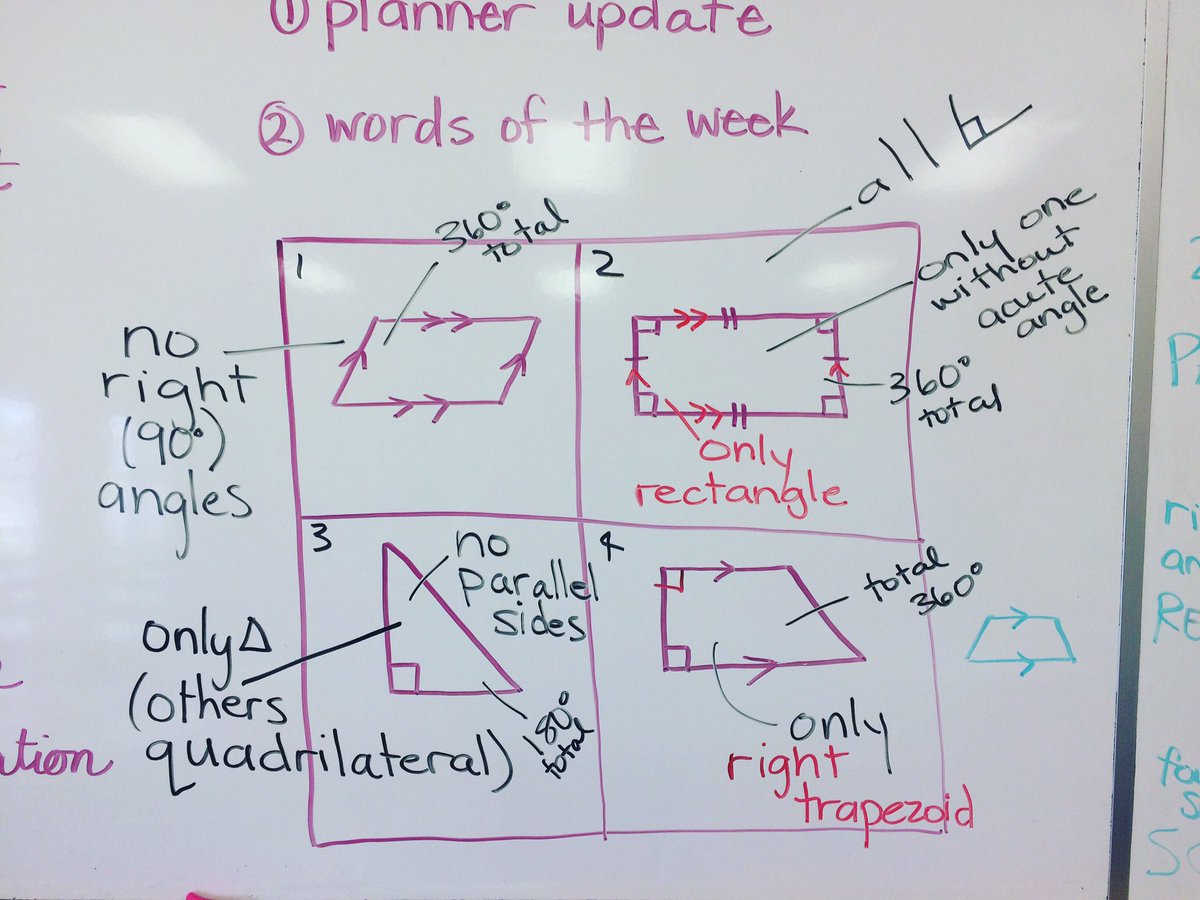 ① planner update
② words of the week
all
1
360°
total
no
right
(90°)
angles
2
only one
without
acute
angle
360°
total
only
rectangle
3
no
parallel
sides
only Δ
(others
quadrilateral)
180°
total
4
total
360°
only
right
trapezoid